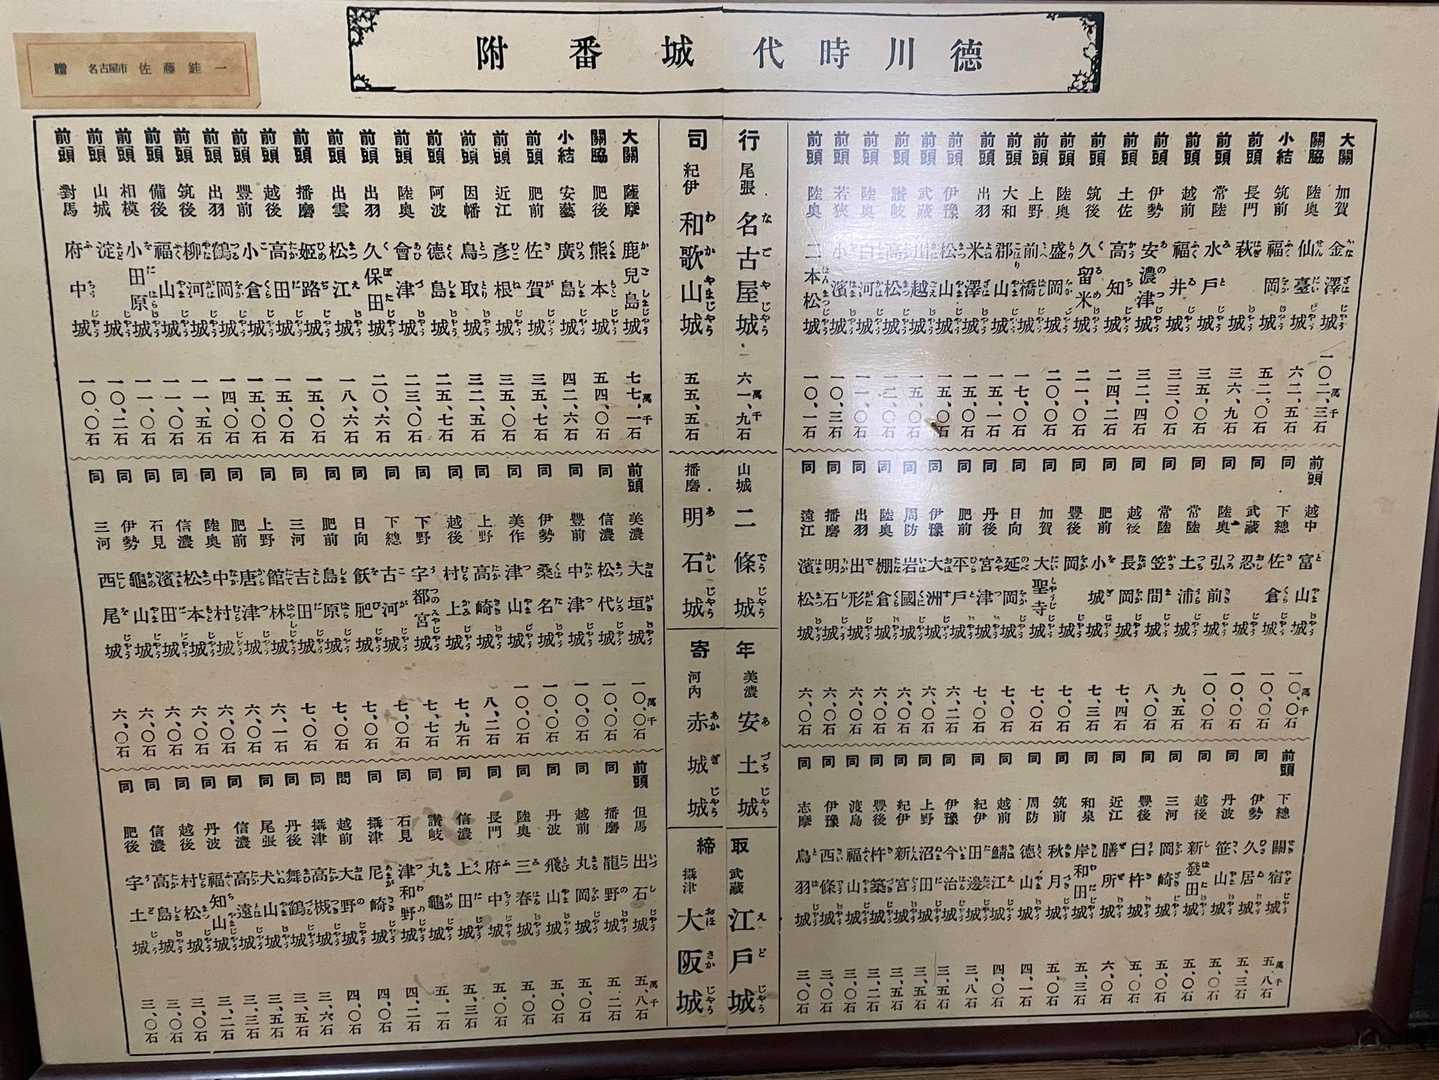 德川時代城番附
贈 名古屋市 佐藤銈一
大關 加賀 金澤城 一〇二、三石
關脇 陸奥 仙臺城 六二、五石
小結 筑前 福岡城 五二、〇石
前頭 長門 萩城 三六、九石
前頭 常陸 水戸城 三五、〇石
前頭 越前 福井城 三三、〇石
前頭 伊勢 安濃津城 三二、四石
前頭 土佐 高知城 二四、二石
前頭 筑後 久留米城 二一、〇石
前頭 陸奥 盛岡城 二〇、〇石
前頭 上野 前橋城 一七、〇石
前頭 大和 郡山城 一五、一石
前頭 出羽 米澤城 一五、〇石
前頭 伊豫 松山城 一五、〇石
前頭 武藏 川越城 一五、〇石
前頭 讃岐 高松城 一二、〇石
前頭 陸奥 白河城 一一、〇石
前頭 若狹 小濱城 一〇、三石
前頭 陸奥 二本松城 一〇、一石
行司
尾張 名古屋城 六一、九石
紀伊 和歌山城 五五、五石
大關 薩摩 鹿兒島城 七七、一石
關脇 肥後 熊本城 五四、〇石
小結 安藝 廣島城 四二、六石
前頭 肥前 佐賀城 三五、七石
前頭 近江 彦根城 三五、〇石
前頭 因幡 鳥取城 三二、五石
前頭 阿波 德島城 二五、七石
前頭 陸奥 會津城 二三、〇石
前頭 出羽 久保田城 二〇、六石
前頭 出雲 松江城 一八、六石
前頭 播磨 姫路城 一五、〇石
前頭 越後 高田城 一五、〇石
前頭 豊前 小倉城 一五、〇石
前頭 出羽 鶴岡城 一四、〇石
前頭 筑後 柳河城 一一、五石
前頭 備後 福山城 一一、〇石
前頭 相模 小田原城 一一、〇石
前頭 山城 淀城 一〇、二石
前頭 對馬 府中城 一〇、〇石
前頭 越中 富山城 一〇、〇石
同 下總 佐倉城 一〇、〇石
同 武藏 忍城 一〇、〇石
同 陸奥 弘前城 一〇、〇石
同 常陸 土浦城 九、五石
同 常陸 笠間城 八、〇石
同 越後 長岡城 七、四石
同 肥前 小城城 七、三石
同 豊後 岡城 七、〇石
同 加賀 大聖寺城 七、〇石
同 日向 延岡城 七、〇石
同 丹後 宮津城 七、〇石
同 肥前 平戸城 六、二石
同 伊豫 大洲城 六、〇石
同 周防 岩國城 六、〇石
同 陸奥 棚倉城 六、〇石
同 出羽 出形城 六、〇石
同 播磨 明石城 六、〇石
同 遠江 濱松城 六、〇石
山城 二條城
播磨 明石城
年寄
美濃 安土城
河内 赤城城
前頭 美濃 大垣城 一〇、〇石
同 信濃 松代城 一〇、〇石
同 豊前 中津城 一〇、〇石
同 伊勢 桑名城 一〇、〇石
同 美作 津山城 一〇、〇石
同 上野 高崎城 八、二石
同 越後 村上城 七、九石
同 下野 宇都宮城 七、七石
同 下總 古河城 七、〇石
同 日向 飫肥城 七、〇石
同 肥前 島原城 七、〇石
同 三河 吉田城 七、〇石
同 上野 館林城 六、一石
同 肥前 唐津城 六、〇石
同 陸奥 中村城 六、〇石
同 信濃 松本城 六、〇石
同 石見 濱田城 六、〇石
同 伊勢 龜山城 六、〇石
同 三河 西尾城 六、〇石
前頭 下總 關宿城 五、八石
同 伊勢 久居城 五、三石
同 丹波 笹山城 五、〇石
同 越後 新發田城 五、〇石
同 三河 岡崎城 五、〇石
同 豊後 臼杵城 五、〇石
同 近江 膳所城 六、〇石
同 和泉 岸和田城 五、三石
同 筑前 秋月城 五、〇石
同 周防 德山城 四、一石
同 越前 鯖江城 四、〇石
同 紀伊 田邊城 三、八石
同 伊豫 今治城 三、五石
同 上野 沼田城 三、五石
同 紀伊 新宮城 三、五石
同 豊後 杵築城 三、二石
同 渡島 福山城 三、〇石
同 伊豫 西條城 三、〇石
同 志摩 鳥羽城 三、〇石
取締
武藏 江戸城
攝津 大阪城
前頭 但馬 出石城 五、八石
同 播磨 龍野城 五、二石
同 越前 丸岡城 五、〇石
同 丹波 飛山城 五、〇石
同 陸奥 三春城 五、〇石
同 長門 府中城 五、〇石
同 信濃 上田城 五、三石
同 讃岐 丸龜城 五、一石
同 石見 津和野城 四、二石
同 攝津 尼崎城 四、〇石
同 越前 大野城 四、〇石
同 攝津 高槻城 三、六石
同 丹後 舞鶴城 三、五石
同 尾張 犬山城 三、五石
同 信濃 高遠城 三、二石
同 丹波 福知山城 三、二石
同 越後 村松城 三、〇石
同 信濃 高島城 三、〇石
同 肥後 宇土城 三、〇石